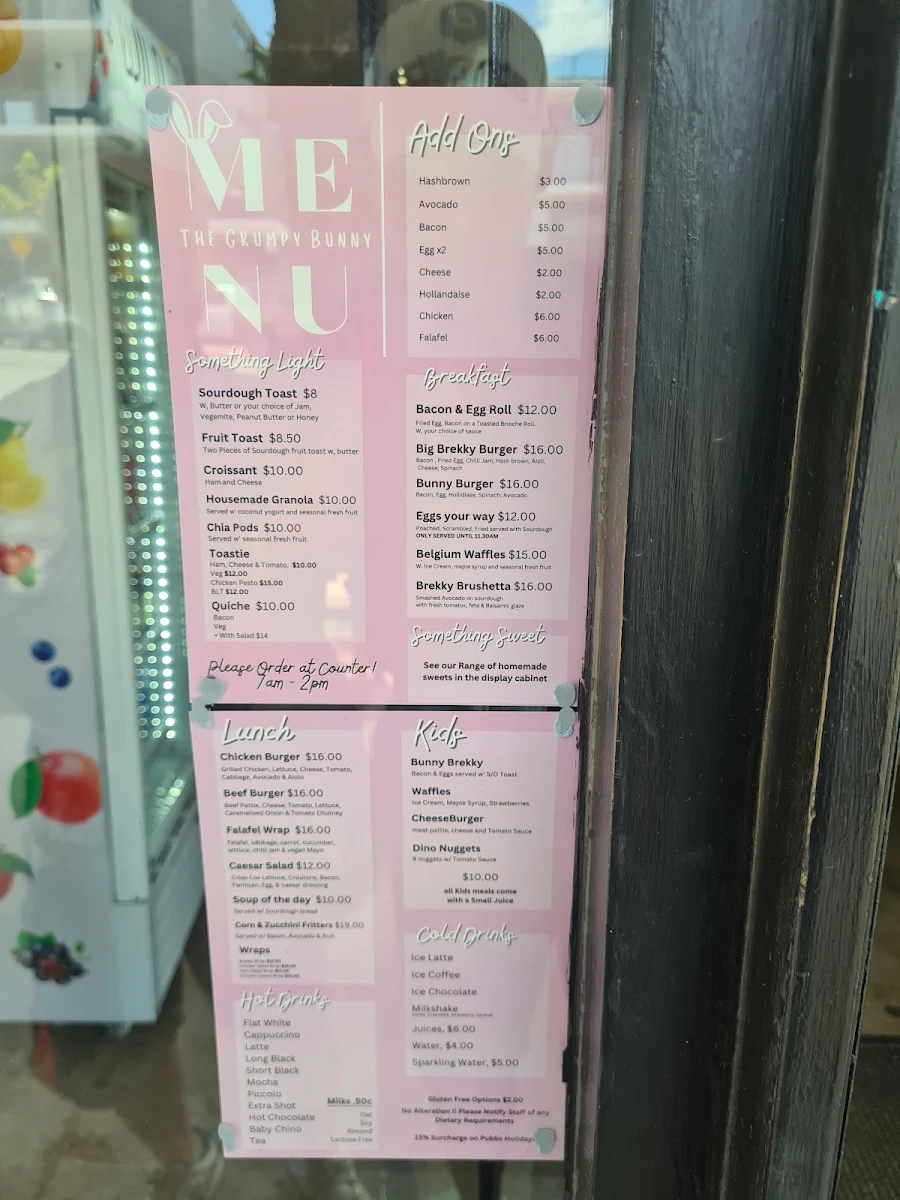 ME
THE GRUMPY BUNNY
NU
Something Light
Sourdough Toast $8
W, Butter or your choice of Jam,
Vegemite, Peanut Butter or Honey
Fruit Toast $8.50
Two Pieces of Sourdough fruit toast w, butter
Croissant $10.00
Ham and Cheese
Housemade Granola $10.00
Served w' coconut yogurt and seasonal fresh fruit
Chia Pods $10.00
Served w' seasonal fresh fruit
Toastie
Ham, Cheese & Tomato, $10.00
Veg $12.00
Chicken Pesto $15.00
BLT $12.00
Quiche $10.00
Bacon
Veg
• With Salad $14
Please Order at Counter!
7am - 2pm
Add Ons
Hashbrown $3.00
Avocado $5.00
Bacon $5.00
Egg x2 $5.00
Cheese $2.00
Hollandaise $2.00
Chicken $6.00
Falafel $6.00
Breakfast
Bacon & Egg Roll $12.00
Fried Egg, Bacon on a Toasted Brioche Roll.
W, your choice of sauce
Big Brekky Burger $16.00
Bacon, Fried Egg, Chilli Jam, Hash brown, Aioli,
Cheese, Spinach
Bunny Burger $16.00
Bacon, Egg, Hollidiase, Spinach, Avocado
Eggs your way $12.00
Poached, Scrambled, Fried served with Sourdough
ONLY SERVED UNTIL 11.30AM
Belgium Waffles $15.00
W, Ice Cream, maple syrup and seasonal fresh fruit
Brekky Brushetta $16.00
Smashed Avocado on sourdough
with fresh tomatos, feta & Balsamic glaze
Something Sweet
See our Range of homemade
sweets in the display cabinet
Lunch
Chicken Burger $16.00
Grilled Chicken, Lettuce, Cheese, Tomato,
Cabbage, Avocado & Aiolo
Beef Burger $16.00
Beef Pattie, Cheese, Tomato, Lettuce,
Caramelised Onion & Tomato Chutney
Falafel Wrap $16.00
Falafel, cabbage, carrot, cucumber,
lettuce, chilli jam & vegan Mayo
Caesar Salad $12.00
Crisp Cos Lettuce, Croutons, Bacon,
Parmsan, Egg, & caesar dressing
Soup of the day $10.00
Served w/ Sourdough bread
Corn & Zucchini Fritters $19.00
Served w/ Bacon, Avocado &
Wraps
Hot Drinks
Flat White
Cappuccino
Latte
Long Black
Short Black
Mocha
Piccolo
Extra Shot
Hot Chocolate
Baby Chino
Tea
Milks .50c
Oat
Soy
Almond
Lactose Free
Kids
Bunny Brekky
Bacon & Eggs served w' S/O Toast
Waffles
Ice Cream, Maple Syrup, Strawberries
CheeseBurger
meat pattie, cheese and Tomato Sauce
Dino Nuggets
8 nuggets w/ Tomato Sauce
$10.00
all Kids meals come
with a Small Juice
Cold Drinks
Ice Latte
Ice Coffee
Ice Chocolate
Milkshake
Juices, $6.00
Water, $4.00
Sparkling Water, $5.00
Gluten Free Options $2.00
No Alteration !! Please Notify Staff of any
Dietary Requirements
15% Surcharge on Public Holidays